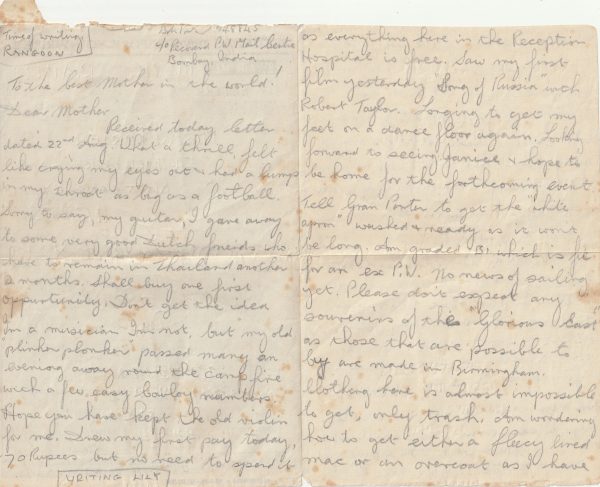 Time of writing
RANGOON
748845
c/o Recovered P.W. Mail Centre
Bombay, India
To the best Mother in the world!
Dear Mother
Received today letter
dated 22nd Aug. What a thrill, felt
like crying my eyes out & had a lump
in my throat as big as a football.
Sorry to say, my guitar, I gave away
to some very good Dutch freids who
have to remain in Thailand another
2 months. Shall buy one first
oppurtunity. Don't get the idea
I'm a musician I'm not, but my old
"plinker plonker" passed many an
evening away round the camp fire
with a few easy numbers.
Hope you have kept the old violin
for me. Drew my first pay today,
70 Rupees but no need to spend it
WRITING LILY
as everything here in the Reception
Hospital is free. Saw my first
film yesterday "Song of Russia" with
Robert Taylor. Longing to get my
feet on a dance floor again. Looking
forward to seeing Janice & hope to
be home for the forthcoming event.
Tell Gran Porter to get the "white
apron" washed & ready as it won't
be long. Am graded B1 which is fit
for an ex P.W. No news of sailing
yet. Please don't expect any
souvenirs of the "Glorious East"
as those that are possible to
buy are made in Birmingham.
Clothing here is almost impossible
to get, only trash. Am wondering
how to get either a fleecy lined
mac or an overcoat as I have